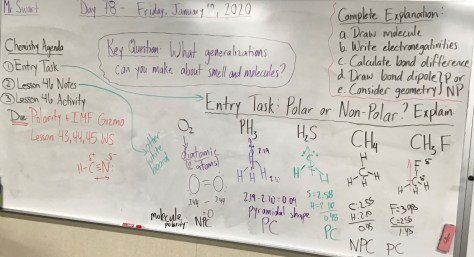 Mr. Swart
Day 78 - Friday, January 10, 2020
Chemistry Agenda
① Entry Task
② Lesson 46 Notes
③ Lesson 46 Activity
Due: Polarity + IMF Gizmo
Lesson 43, 44, 45 WS
H-C≡N:
Key Question: What generalizations
can you make about smell and molecules?
Complete Explanation:
a. Draw molecule
b. Write electronegativities
c. Calculate bond difference
d. Draw bond dipole
e. Consider geometry
P or
NP
Entry Task: Polar or Non-Polar? Explain
other
white
board
O₂
diatomic
(2 atoms)
O=O
molecule
polarity:
NPC
PH₃
2.19
2.19-2.10=0.09
Pyramidal shape
PC
H₂S
S=2.58
H=2.10
PC
CH₄
C:2.55
H:2.10
NPC
CH₃F
F=3.98
C=2.55
1.43
PC